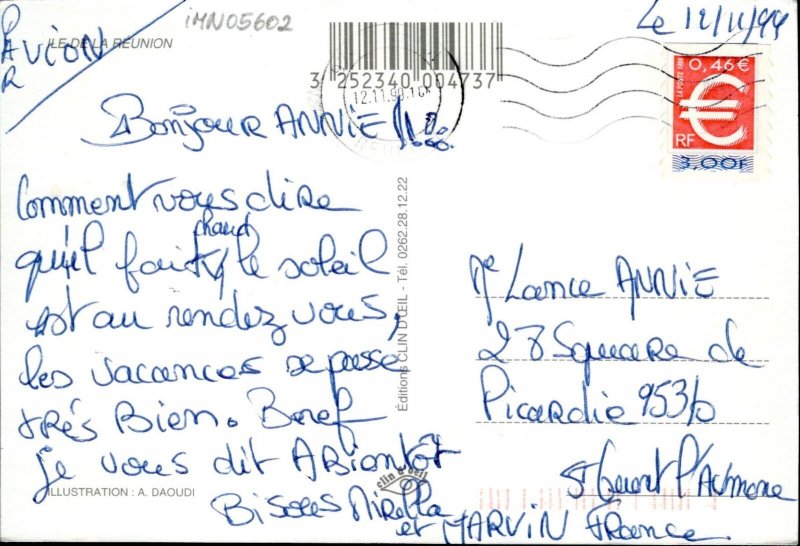 iMN05602
Le 12/11/99
PAR AVION
ILE DE LA RÉUNION
3 252340 004737
12.11.99
0,46€
LA POSTE 1999
RF
3,00F
Bonjour ANNIE !!
Comment vous dire
qu'il fait chaud, le soleil
est au rendez vous,
les vacances se passe
très Bien. Baref
je vous dit ABiantôt
Bisous Mirella
et MARVIN
Editions CLIN D'ŒIL - Tél. 0262.28.12.22
clin d'œil
ILLUSTRATION : A. DAOUDI
Me Lance ANNIE
28 Square de
Picardie 95310
St Ouent l'Aumone
France